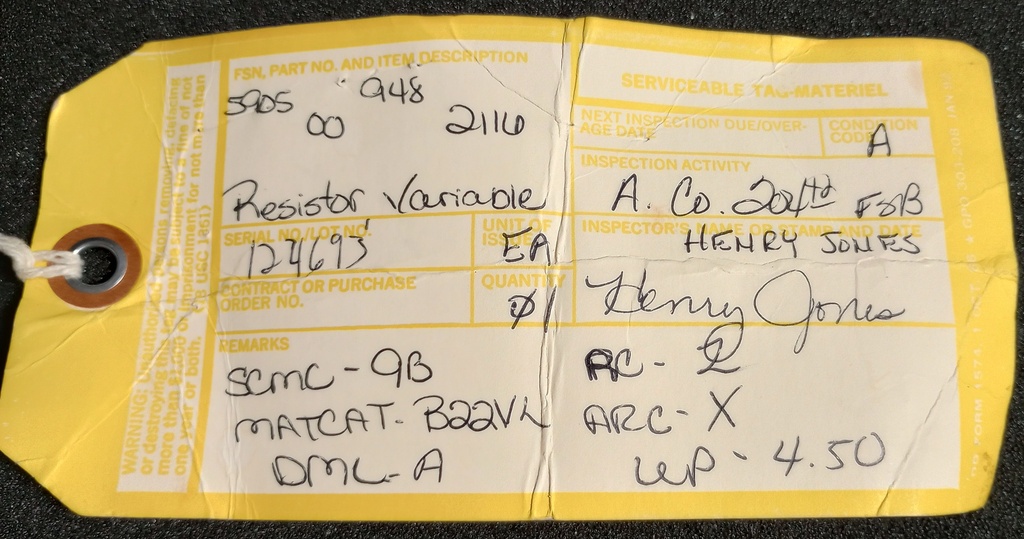 FSN, PART NO. AND ITEM DESCRIPTION
5905 00 948 2116
Resistor Variable
SERIAL NO./LOT NO.
124693
UNIT OF ISSUE
EA
CONTRACT OR PURCHASE ORDER NO.
QUANTITY
01
REMARKS
SCMC - 9B
MATCAT - B22VL
DML - A
SERVICEABLE TAG-MATERIEL
NEXT INSPECTION DUE/OVER-
AGE DATE
CONDITION
CODE
A
INSPECTION ACTIVITY
A. Co. 204th FSB
INSPECTOR'S NAME OR STAMP AND DATE
HENRY JONES
Henry Jones
RC -
ARC - X
UP - 4.50
WARNING: Unauthorized persons removing, defacing
or destroying this tag may be subject to a fine of not
more than $1,000 or imprisonment for not more than
one year or both.
(18 USC 1361)
DD FORM 1574, 1 OCT